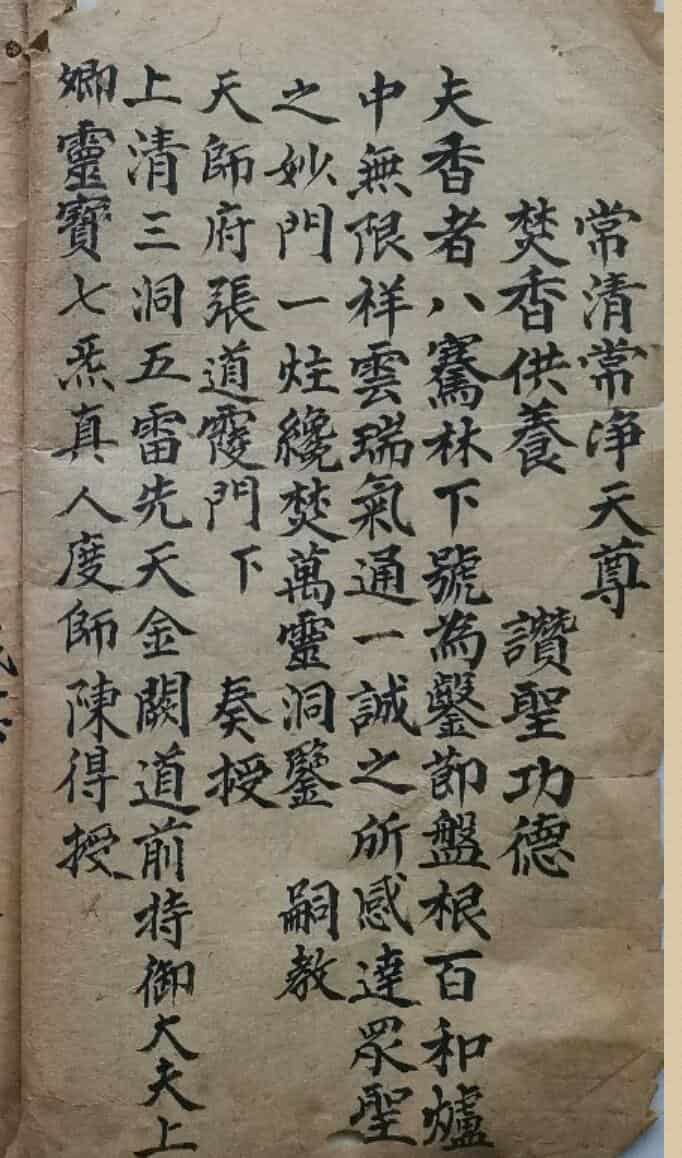 常清常净天尊
焚香供養 讚聖功德
夫香者八騫林下號為鑿節盤根百和爐
中無限祥雲瑞氣通一誠之所感達眾聖
之妙門一炷纔焚萬靈洞鑒 嗣教
天師府張道霞門下 奏授
上清三洞五雷先天金闕道前待御大夫上
卿靈寶七炁真人度師陳得授